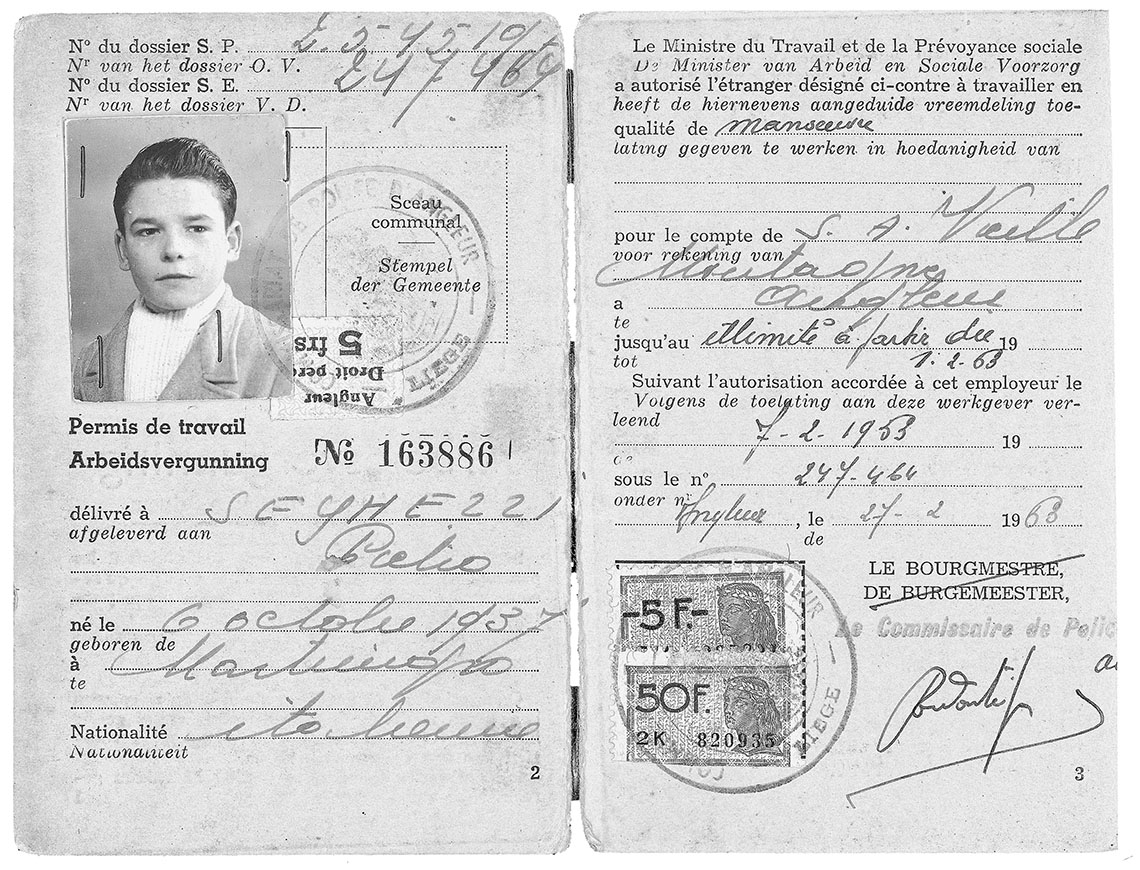 N° du dossier S. P. 2.545.191
Nr van het dossier O. V.
N° du dossier S. E. 247464
Nr van het dossier V. D.
Sceau
communal
Stempel
der Gemeente
POLICE D'ANGLEUR
LIEGE
5 frs
Droit perç
Angleur
Permis de travail
Arbeidsvergunning
№ 163886
délivré à
afgeleverd aan
né le 6 octobre 1937
geboren de
à
te
Nationalité italienne
Nationaliteit
2
Le Ministre du Travail et de la Prévoyance sociale
De Minister van Arbeid en Sociale Voorzorg
a autorisé l'étranger désigné ci-contre à travailler en
heeft de hiernevens aangeduide vreemdeling toe-
qualité de manoeuvre
lating gegeven te werken in hoedanigheid van
pour le compte de S. A. Vieille
voor rekening van Montagne
a Angleur
te
jusqu'au illimité à partir du 19
tot 1.2.63
Suivant l'autorisation accordée à cet employeur le
Volgens de toelating aan deze werkgever ver-
leend
7-2-1953 19
sous le n° 247-464
onder nr
Angleur , le 27-2 1963
de
LE BOURGMESTRE,
DE BURGEMEESTER,
Le Commissaire de Polic
-5 F.-
50F.
2K 820935
LIEGE
3